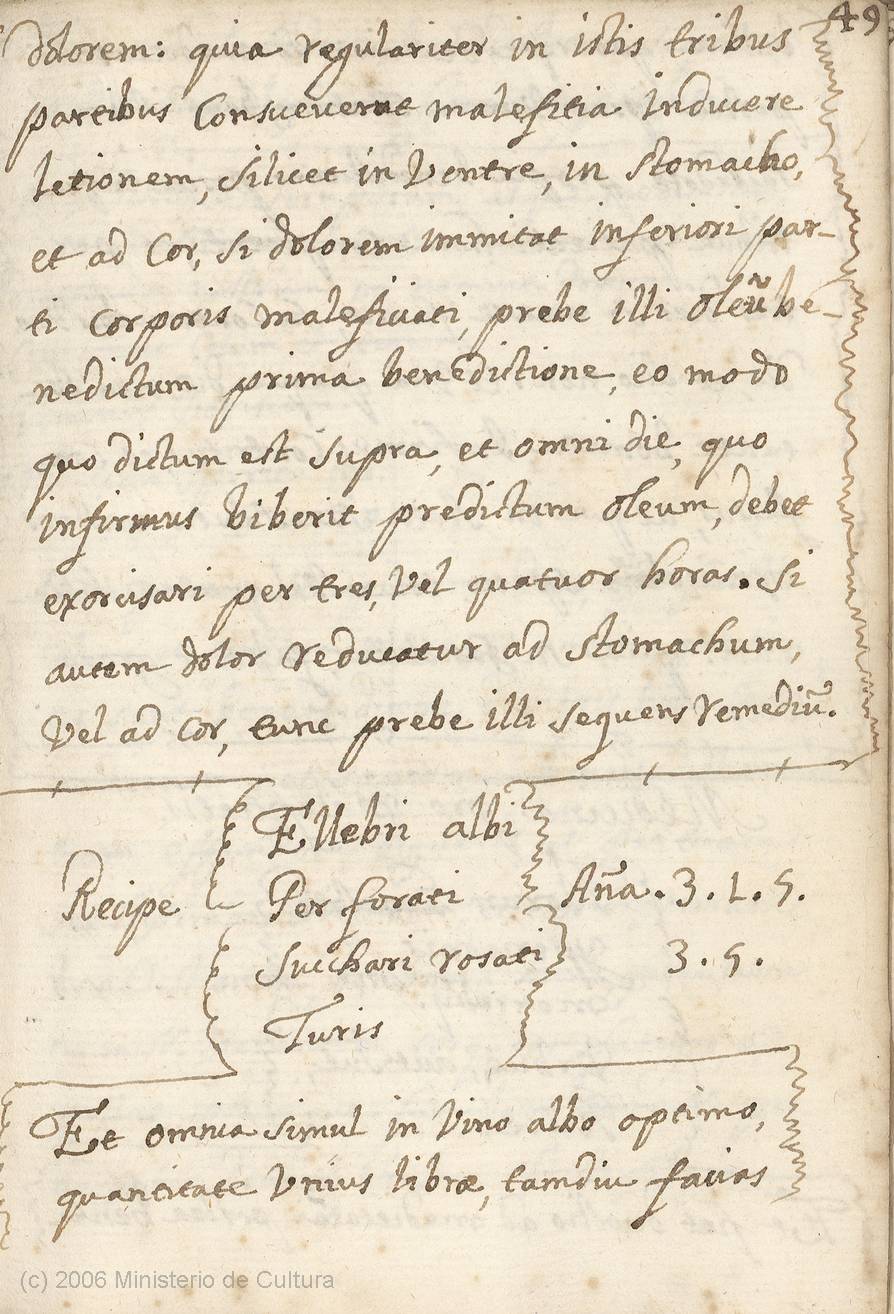 49
dolorem: quia regulariter in istis tribus
partibus Consueverat malefitia Inducere
letionem, silicet in Ventre, in stomacho,
et ad Cor, si dolorem immitat inferiori par-
ti Corporis maleficiati, prebe illi oleũ be-
nedictum prima benedictione, eo modo
quo dictum est supra, et omni die, quo
infirmus biberit predictum oleum, debet
exorcisari per tres, vel quatuor horas. Si
autem dolor reducatur ad stomachum,
Vel ad Cor, tunc prebe illi sequens remediũ.
Ellebri albi
Recipe Perforati Aña. 3. 1. 5.
Succhari rosati 3. 5.
Turis
Et omnia simul in vino albo optimo,
quantitate Unius libræ, tamdiu facias
(c) 2006 Ministerio de Cultura